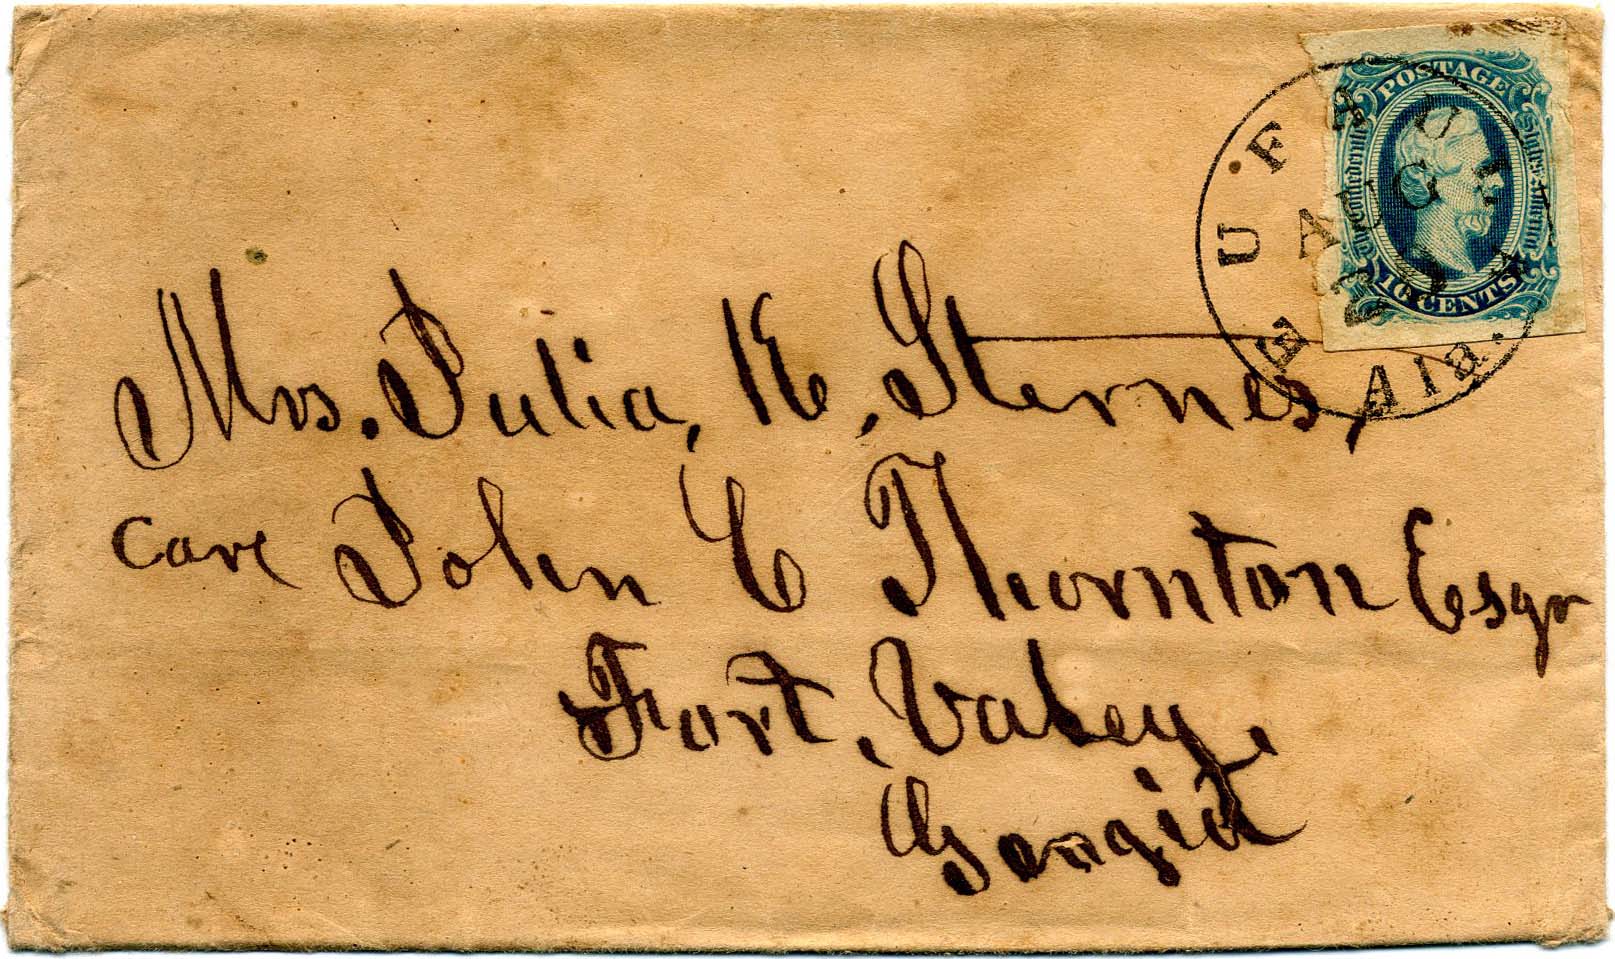 POSTAGE
The Confederate States of America
10 CENTS
EUFAULA
AUG
Mrs. Julia, K, Sternes,
care John C Thornton Esqr
Fort, Valey,
Georgia